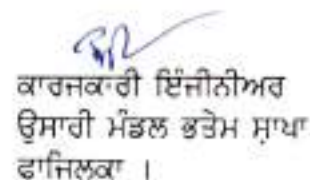 ਕਾਰਜਕਾਰੀ ਇੰਜੀਨੀਅਰ
ਉਸਾਰੀ ਮੰਡਲ ਭਤੇਮ ਸ਼ਾਖਾ
ਫਾਜਿਲਕਾ ।